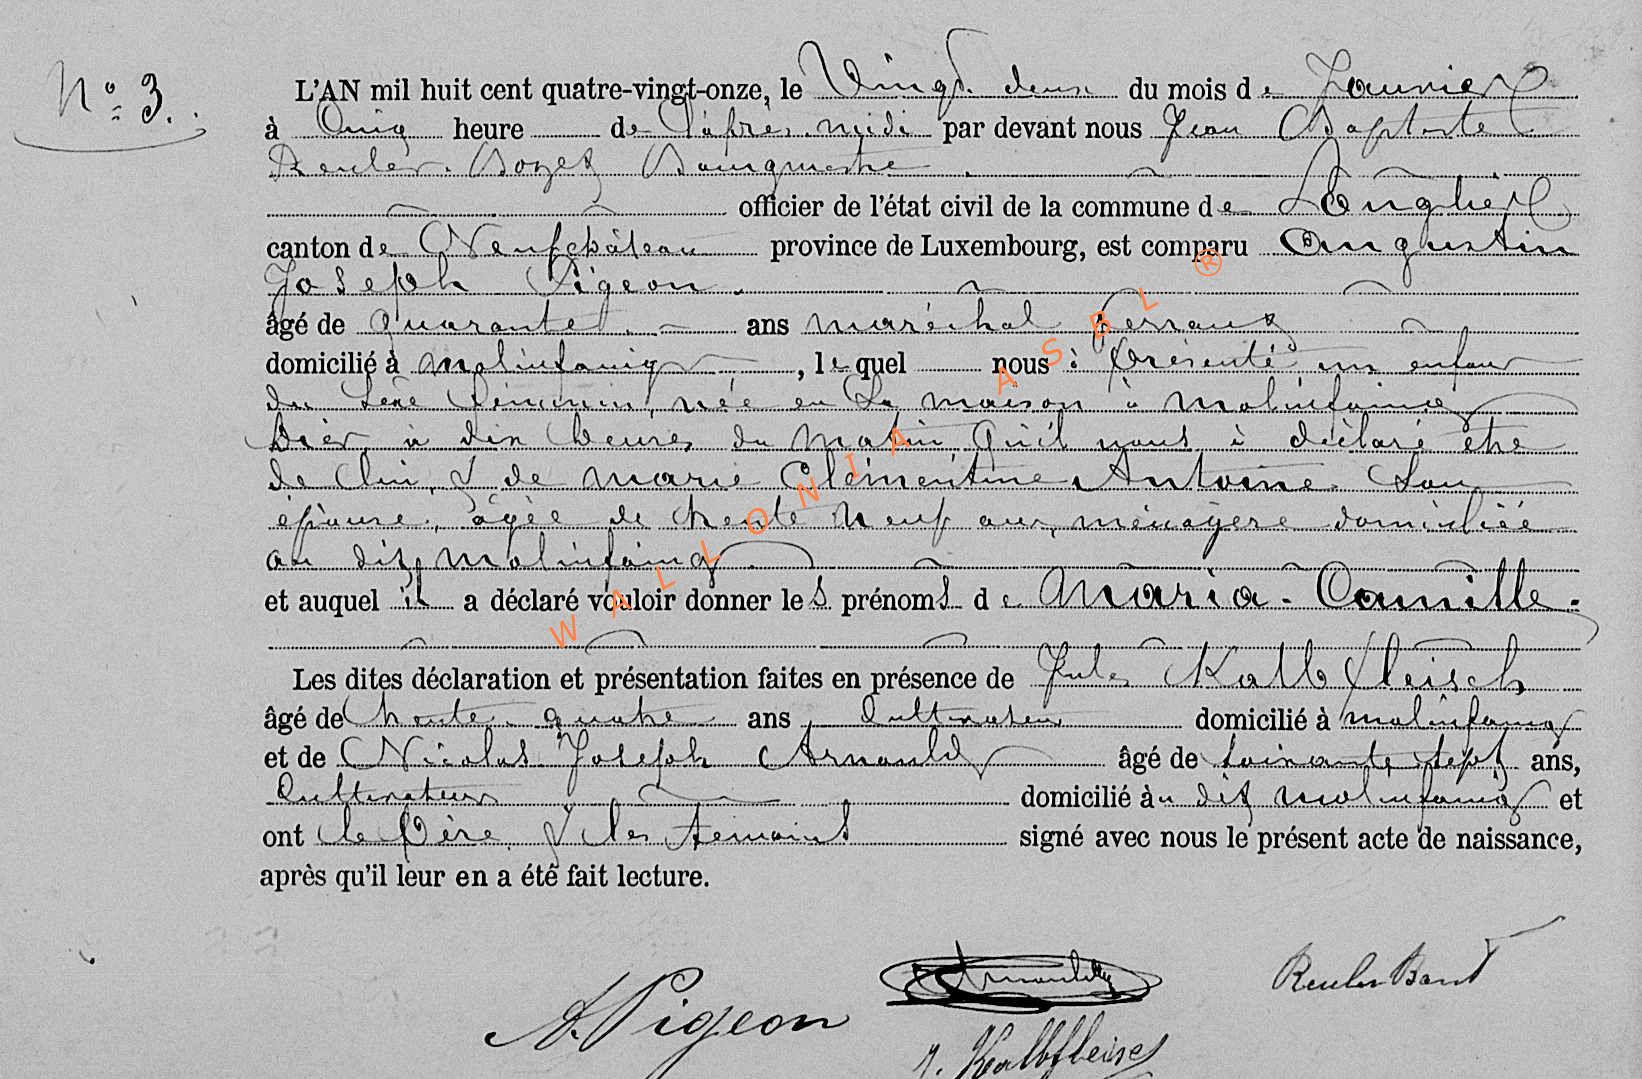 N° 3.
L'AN mil huit cent quatre-vingt-onze, le Vingt deux du mois de Janvier
à Cinq heure de l'après midi par devant nous Jean Baptiste
Reuler Bourgmestre
officier de l'état civil de la commune de Longlier
canton de Neufchâteau province de Luxembourg, est comparu Augustin
Joseph Pigeon
âgé de quarante ans maréchal ferrant
domicilié à Molinfaing, lequel nous à présenté un enfant
du sexe féminin, née en sa maison à Molinfaing
hier à dix heures du matin qu'il nous à déclaré être
de lui, & de Marie Clémentine Antoine son
épouse, âgée de trente neuf ans, ménagère domiciliée
au dit Molinfaing
et auquel il a déclaré vouloir donner les prénoms de Maria-Camille.
Les dites déclaration et présentation faites en présence de Jules Kalbfleisch
âgé de trente quatre ans, Cultivateur domicilié à Molinfaing
et de Nicolas Joseph Arnould âgé de soixante sept ans,
Cultivateur domicilié àu dit Molinfaing et
ont le Père & les témoins signé avec nous le présent acte de naissance,
après qu'il leur en a été fait lecture.
WALLONIA ASBL ®
Arnould Reuler
A. Pigeon
J. Kalbfleisch